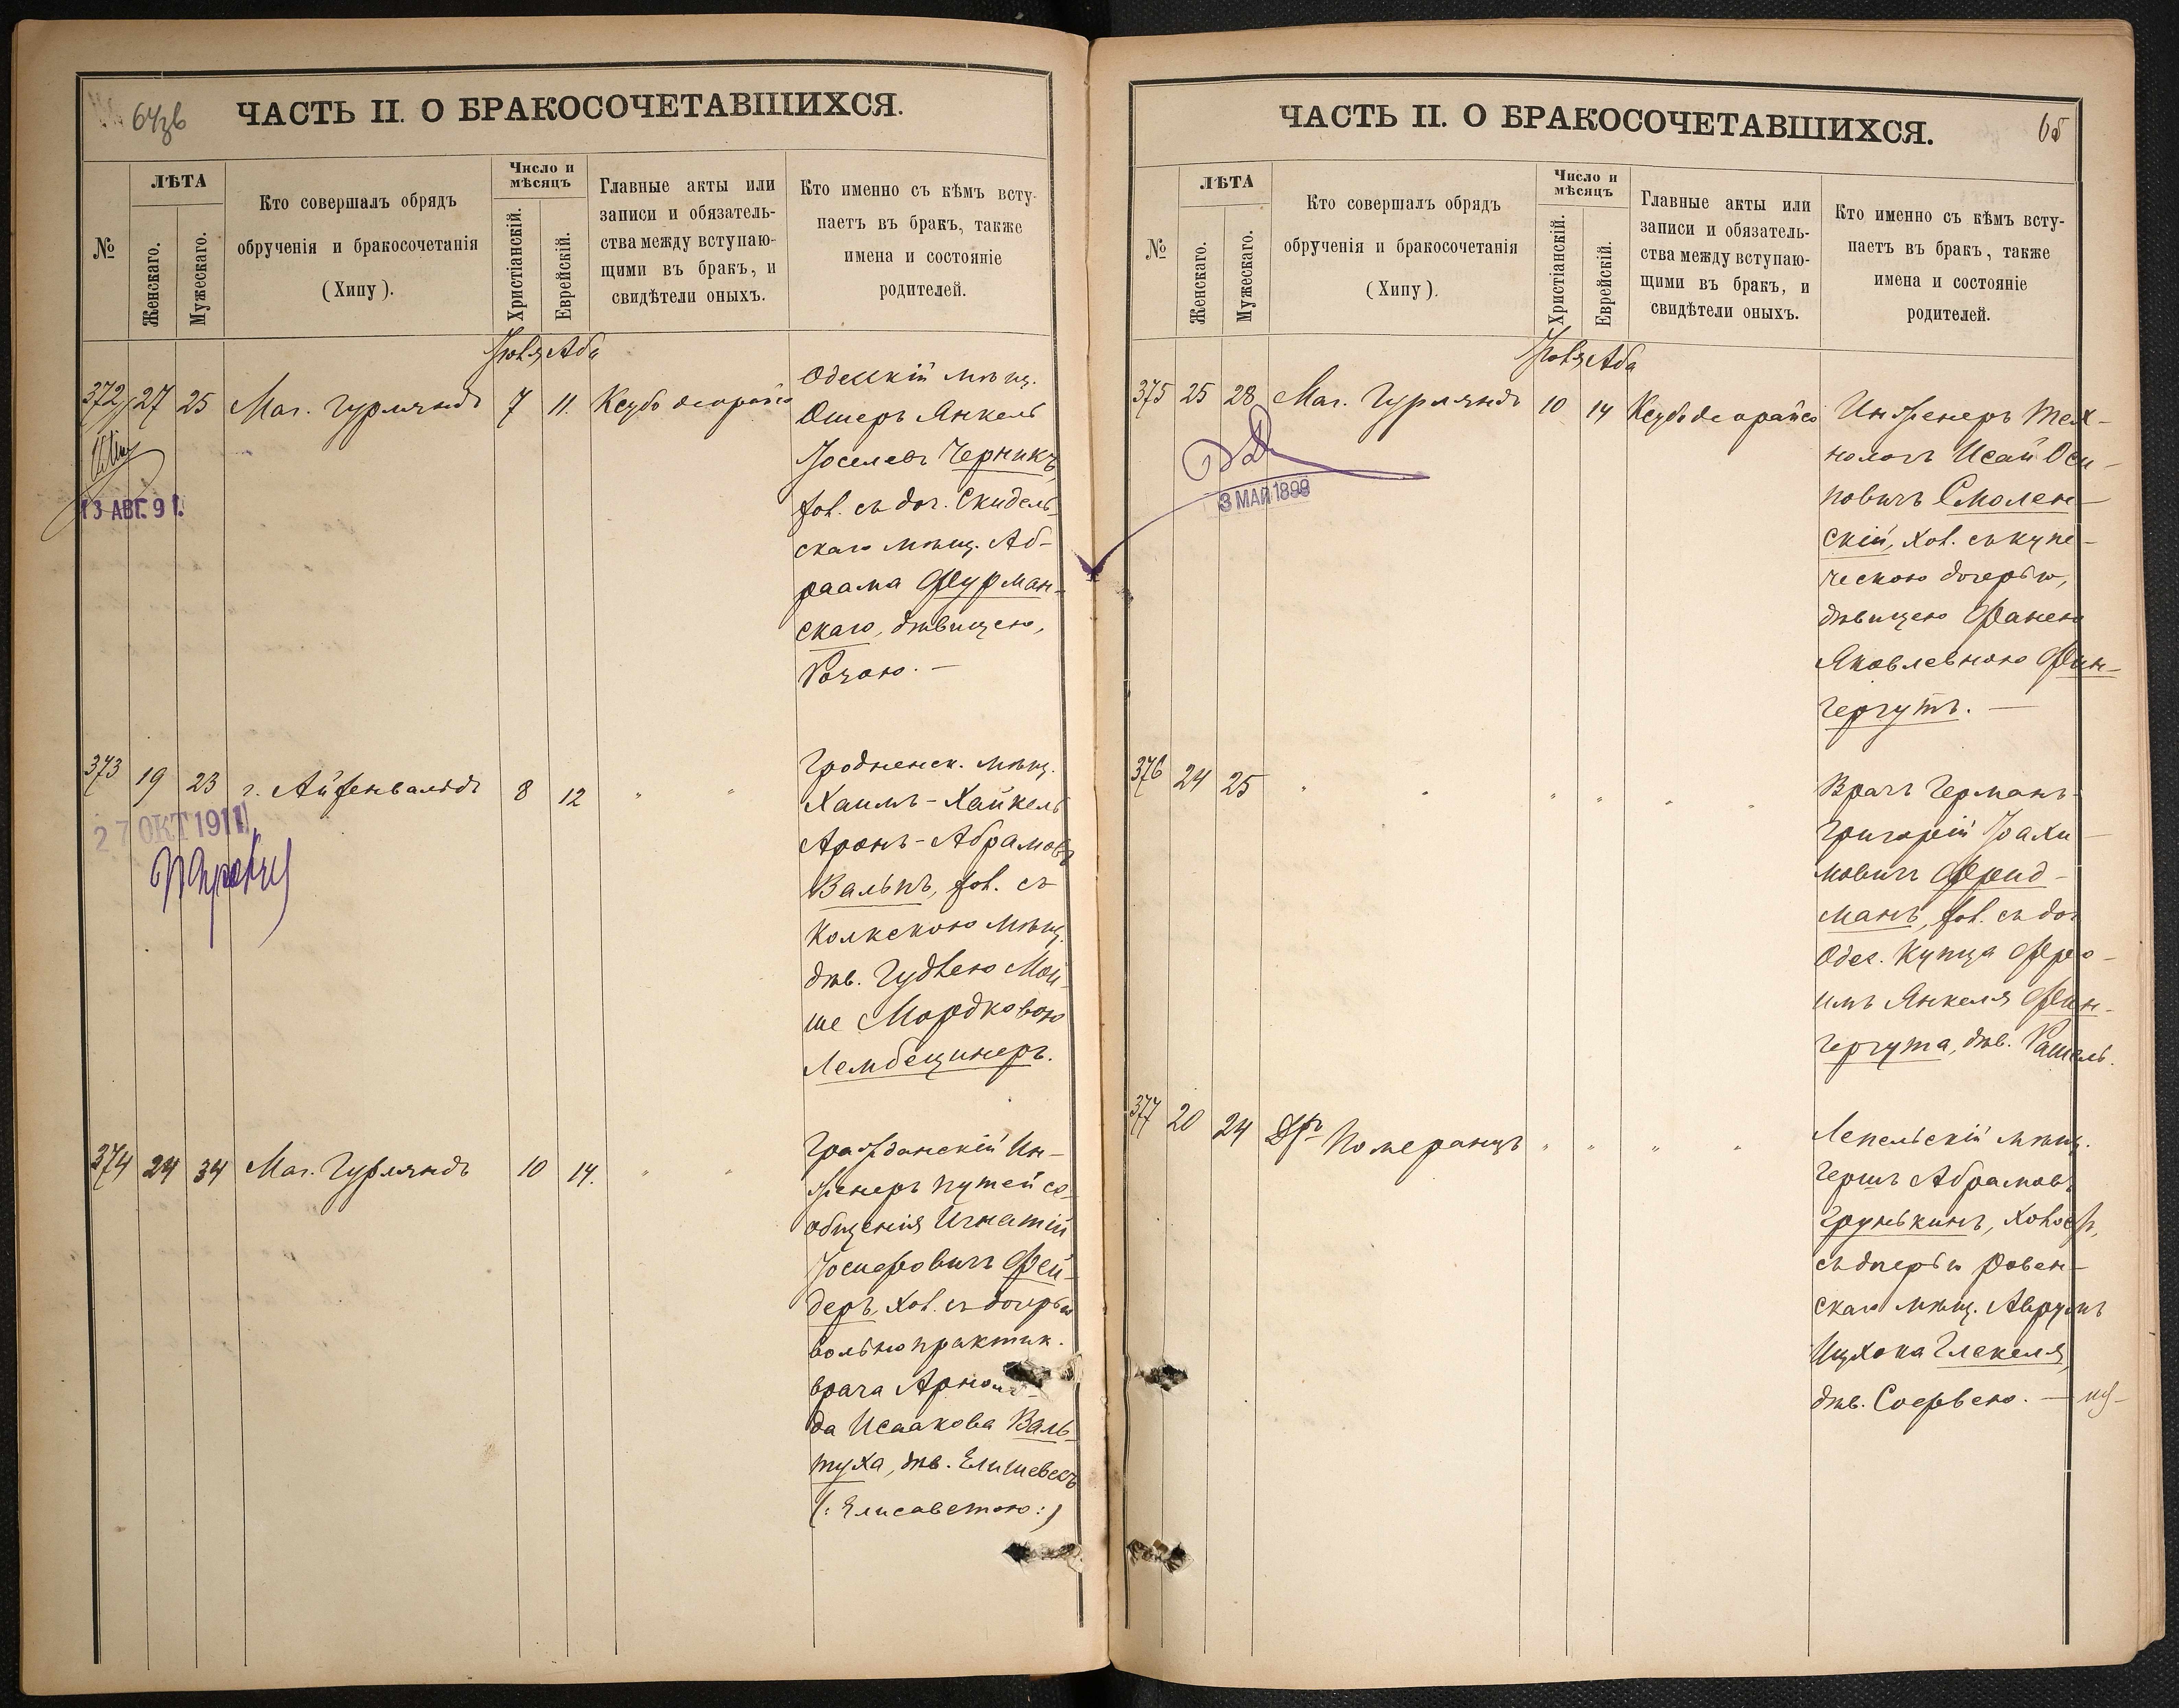 64 зв
ЧАСТЬ II. О БРАКОСОЧЕТАВШИХСЯ.
№
ЛѢТА
Женскаго.
Мужескаго.
Кто совершалъ обрядъ
обрученія и бракосочетанія
(Хипу).
Число и
мѣсяцъ
Христіанскій.
Еврейскій.
Главные акты или
записи и обязатель-
ства между вступаю-
щими въ бракъ, и
свидѣтели оныхъ.
Кто именно съ кѣмъ всту-
паетъ въ бракъ, также
имена и состояніе
родителей.
Іюля Аба
372 27 25 Маг. Гурляндъ 7 11. Ксубо деорайсо
Одесскій мѣщ.
Ошеръ Янкель
Іоселевъ Черникъ,
хол. съ доч. Скидель-
скаго мѣщ. Аб-
раама Фурман-
скаго, дѣвицею,
Рохою. —
13 АВГ. 91.
373 19 23 г. Айзенвальдъ 8 12 " "
Гродненск. мѣщ.
Хаимъ-Хайкель
Аронъ-Абрамовъ
Вальпъ, хол. съ
Колкскою мѣщ.
дѣв. Гудлею Мой-
ше Мордковою
Лембецинеръ.
27 ОКТ 1911
374 24 34 Маг. Гурляндъ 10 14. " "
Гражданскій Ин-
женеръ путей со-
общенія Игнатій
Іосифовичъ Фей-
деръ, хол. съ дочерью
вольнопрактик.
врача Арноль-
да Исаакова Валь-
туха, дѣв. Елишевесъ
(: Елисаветою :)
65
ЧАСТЬ II. О БРАКОСОЧЕТАВШИХСЯ.
№
ЛѢТА
Женскаго.
Мужескаго.
Кто совершалъ обрядъ
обрученія и бракосочетанія
(Хипу).
Число и
мѣсяцъ
Христіанскій.
Еврейскій.
Главные акты или
записи и обязатель-
ства между вступаю-
щими въ бракъ, и
свидѣтели оныхъ.
Кто именно съ кѣмъ всту-
паетъ въ бракъ, также
имена и состояніе
родителей.
Іюля Аба
375 25 28 Маг. Гурляндъ 10 14 Ксубо деорайсо
Инженеръ Тех-
нологъ Исай Оси-
повичъ Смолен-
скій, хол. съ купе-
ческою дочерью,
дѣвицею Фанею
Яковлевною Фин-
гергутъ. —
3 МАЙ 1899
376 24 25 " " " " " "
Врачъ Германъ-
Григорій Іоахи-
мовичъ Фрид-
манъ, хол. съ доч
Одес. купца Фрео-
имъ Янкеля Фин-
гергута, дѣв. Рашель.
377 20 24 Др Померанцъ " " " "
Лепельскій мѣщ.
Гершъ Абрамовъ
Грунькинъ, холост,
съ дщерью Ровен-
скаго мѣщ. Аврумъ
Ицхока Глекеля,
дѣв. Софьею. —